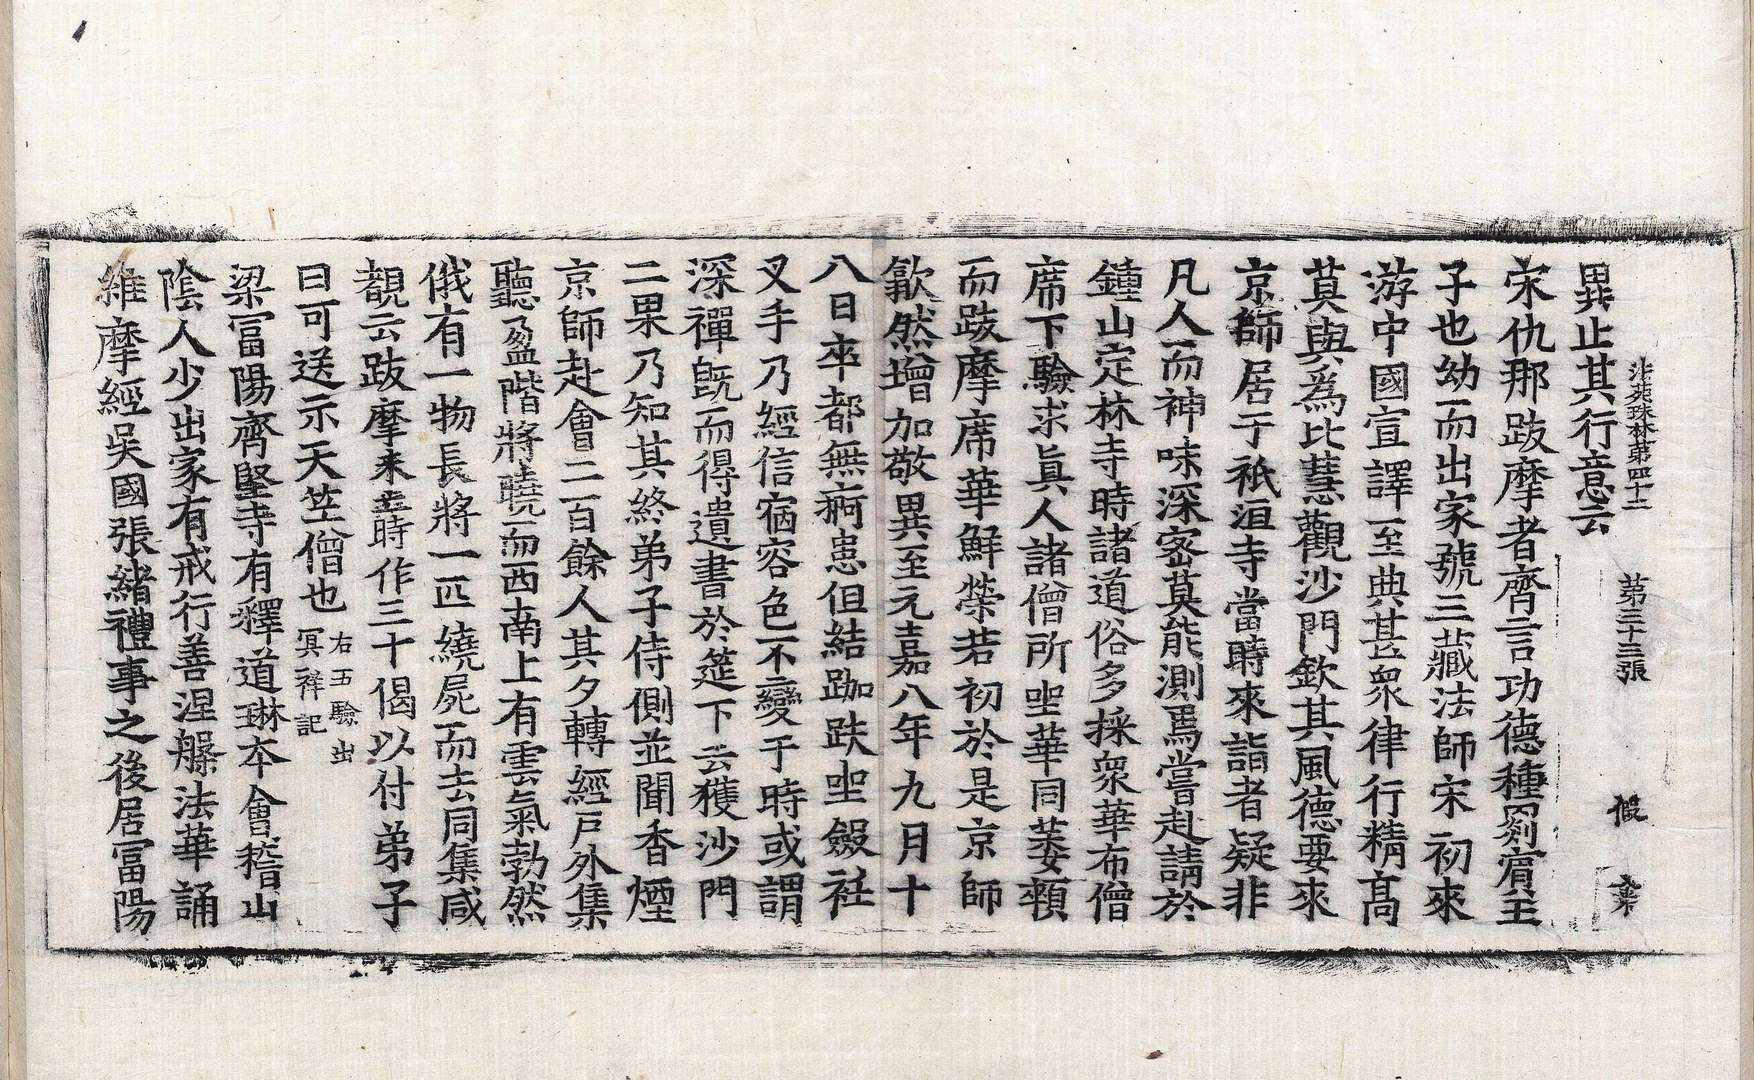 異止其行意云
法苑珠林第四十二 第三十三張 假 
宋仇那跋摩者齊言功德種罽賓王
子也幼而出家號三藏法師宋初來
游中國宣譯至典甚衆律行精高
莫與爲比慧觀沙門欽其風德要來
京師居于祇洹寺當時來詣者疑非
凡人而神味深密莫能測焉嘗赴請於
鍾山定林寺時諸道俗多採衆華布僧
席下驗求眞人諸僧所坐華同萎顇
而跋摩席華鮮榮若初於是京師
歙然增加敬異至元嘉八年九月十
八日卒都無痾患但結跏趺坐斂衽
叉手乃經信宿容色不變于時或謂
深禪既而得遺書於筵下云獲沙門
二果乃知其終弟子侍側並聞香煙
京師赴會二百餘人其夕轉經戶外集
聽盈階將曉而西南上有雲氣勃然
俄有一物長將一匹繞屍而去同集咸
覩云跋摩未亡時作三十偈以付弟子
曰可送示天竺僧也 右五驗出
冥祥記
梁富陽齊堅寺有釋道琳本會稽山
陰人少出家有戒行善涅槃法華誦
維摩經吳國張緒禮事之後居富陽